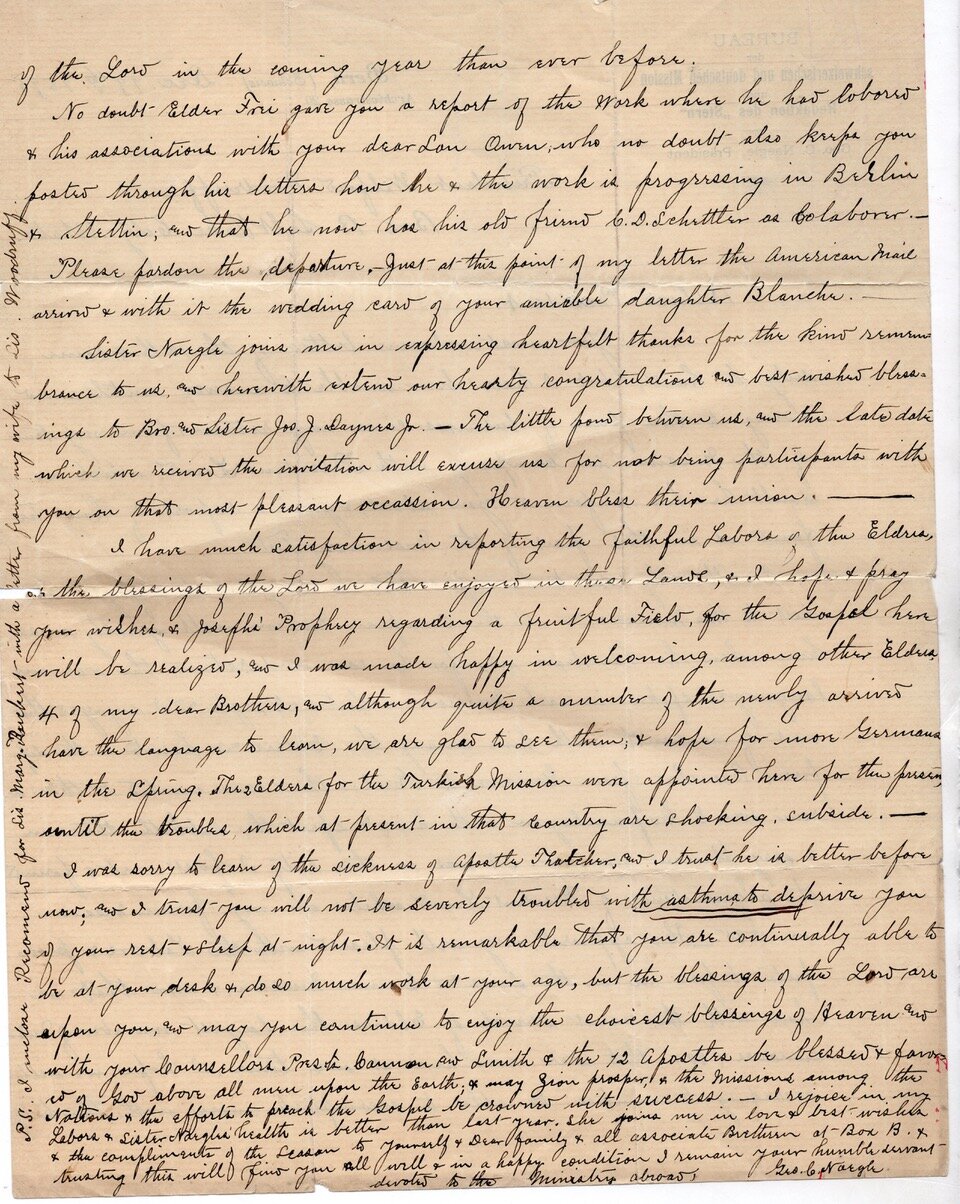 of the Lord in the coming year than ever before.
No doubt Elder Frei gave you a report of the Work where he had labored
& his associations with your dear Son Owen, who no doubt also keeps you
posted through his letters how he & the work is progressing in Berlin
& Stettin; and that he now has his old friend C. D. Schettler as Colaborer. —
Please pardon the departure. — Just at this point of my letter the American Mail
arrived & with it the wedding card of your amiable daughter Blanche. —
Sister Naegle joins me in expressing heartfelt thanks for the kind remem-
brance to us, and herewith extend our hearty congratulations and best wished bless-
ings to Bro. and Sister Jos. J. Daynes Jr. — The little pond between us, and the late date
which we received the invitation will excuse us for not being participants with
you on that most pleasant occassion. Heaven bless their union. —
I have much satisfaction in reporting the faithful Labors of the Elders,
& the blessings of the Lord we have enjoyed in these Lands, & I hope & pray
your wishes, & Joseph's Prophecy regarding a fruitful Field, for the Gospel here
will be realized, and I was made happy in welcoming, among other Elders
4 of my dear Brothers, and although quite a number of the newly arrived
have the language to learn, we are glad to see them, & hope for more Germans
in the Spring. The 2 Elders for the Turkish Mission were appointed here for the present,
until the troubles, which at present in that Country are shocking, subside. —
I was sorry to learn of the sickness of Apostle Thatcher, and I trust he is better before
now, and I trust you will not be severely troubled with asthma to deprive you
of your rest & sleep at night. It is remarkable that you are continually able to
be at your desk & do so much work at your age, but the blessings of the Lord are
upon you, and may you continue to enjoy the choicest blessings of Heaven and
with your Counsellors Presdts. Cannon and Smith & the 12 Apostles be blessed & favor-
ed of God above all men upon the Earth, & may Zion prosper, & the Missions among the
Nations & the efforts to preach the Gospel be crowned with success. — I rejoice in my
Labors & Sister Naegles health is better than last year. She joins me in love & best wishes
& the compliments of the Season to yourself & Dear family & all associate Brethern at Box B. &
trusting this will find you all well & in a happy condition I remain your humble servant
devoted to the Ministry abroad,
Geo. C. Naegle
P.S. I inclose Recomend for Sis. Marg. Reichert with a letter from my wife to Sis. Woodruff.
BUREAU